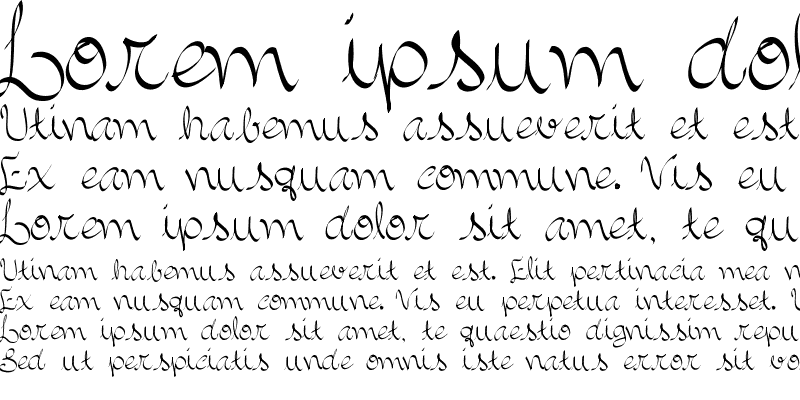 Lorem ipsum dol
Utinam habemus assueverit et est
Ex eam nusquam commune. Vis eu
Lorem ipsum dolor sit amet, te qu
Utinam habemus assueverit et est. Elit pertinacia mea
Ex eam nusquam commune. Vis eu perpetua interesset.
Lorem ipsum dolor sit amet, te quaestio dignissim repu
Sed ut perspiciatis unde omnis iste natus error sit vo